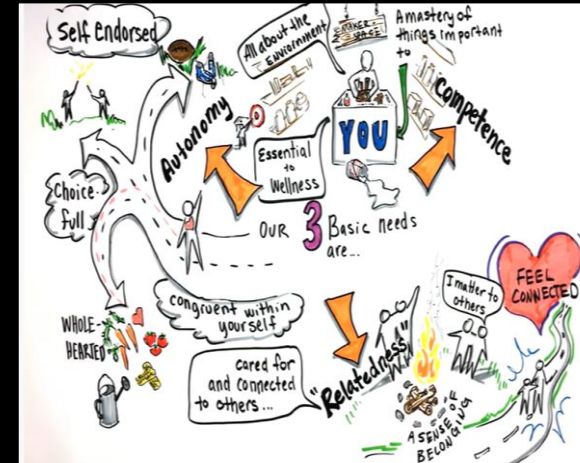 Self Endorsed
All about the
Enviornment
MAKER
SPACE
A mastery of
things important
to
YOU
Competence
Autonomy
Essential
to
Wellness
Choice-
full
OUR 3 Basic needs
are...
WHOLE-
HEARTED
congruent within
yourself
cared for
and connected
to others...
"Relatedness"
I matter to
others
FEEL
CONNECTED
A SENSE OF
BELONGING